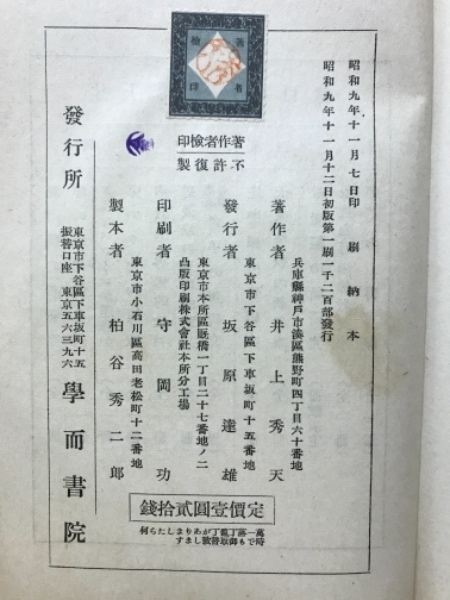 著者
檢印
著作者檢印
不許復製
昭和九年十一月七日印刷納本
昭和九年十一月十二日初版第一刷一千二百部發行
兵庫縣神戶市湊區熊野町四丁目六十番地
著作者 井上秀天
東京市下谷區下車坂町十五番地
發行者 坂原達雄
東京市本所區厩橋一丁目二十七番地ノ二
凸版印刷株式會社本所分工場
印刷者 守岡功
東京市小石川區高田老松町十二番地
製本者 柏谷秀二郎
發行所
東京市下谷區下車坂町十五
振替口座 東京五六三九六
學而書院
定價壹圓貳拾錢
萬一落丁亂丁がありましたら何
時でも御取替致します